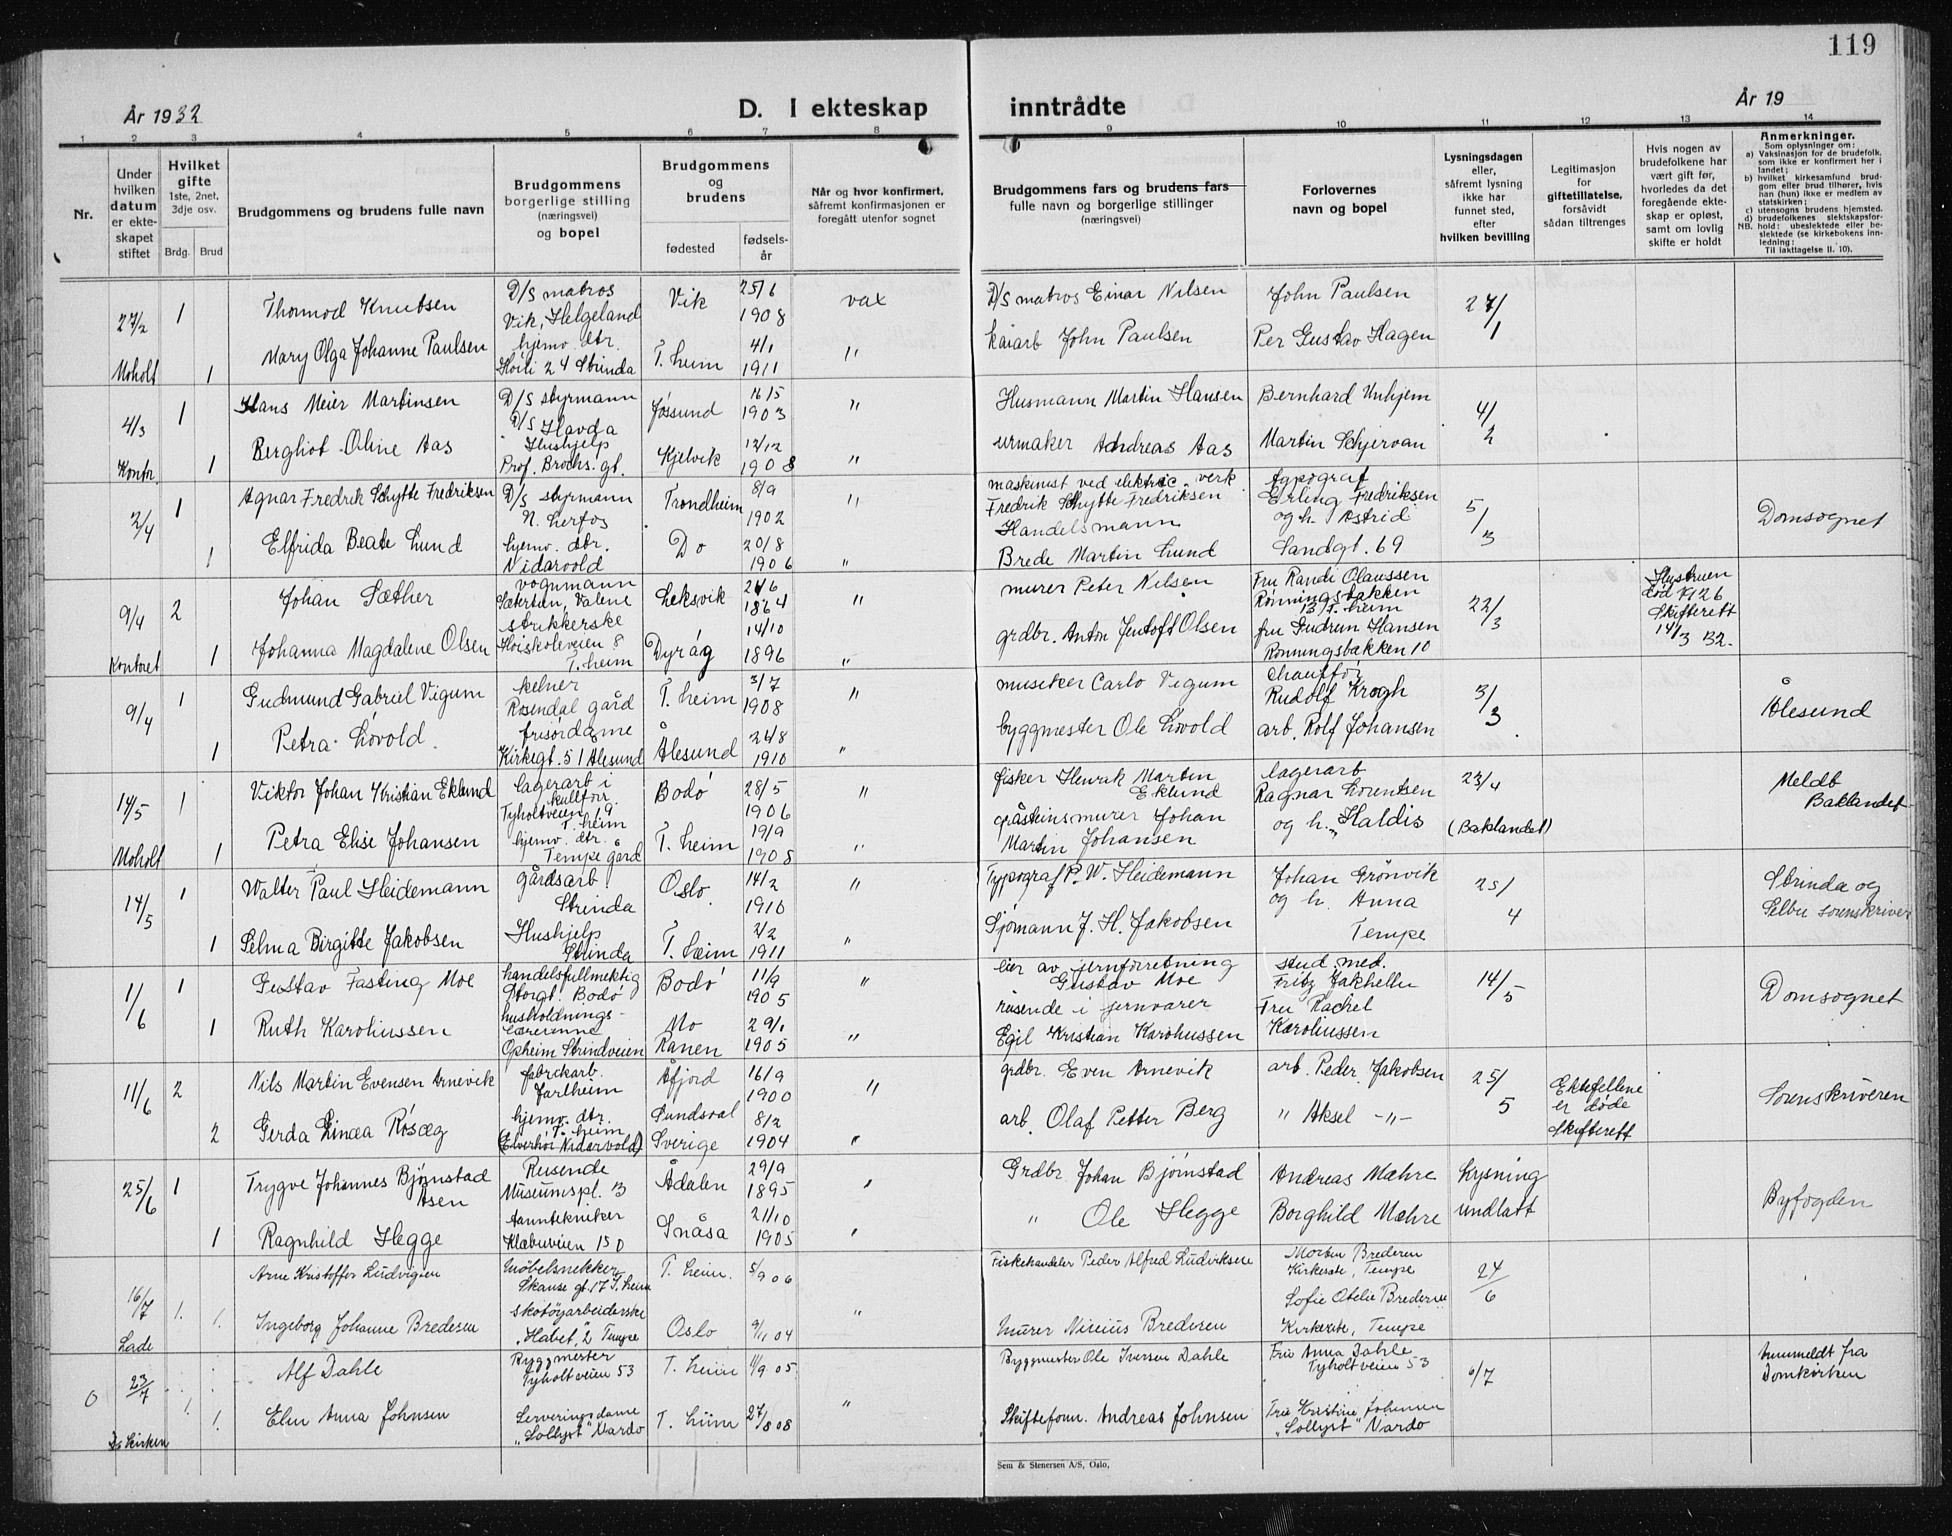 119
År 1932
D. I ekteskap inntrådte
År 19
1 2 3 4 5 6 7 8 9 10 11 12 13 14
Nr.
Under hvilken datum er ekteskapet stiftet
Hvilket gifte
1ste, 2net, 3dje osv.
Brdg. Brud
Brudgommens og brudens fulle navn
Brudgommens borgerlige stilling (næringsvei) og bopel
Brudgommens og brudens
fødested
fødselsår
Når og hvor konfirmert, såfremt konfirmasjonen er foregått utenfor sognet
Brudgommens fars og brudens fars fulle navn og borgerlige stillinger (næringsvei)
Forlovernes navn og bopel
Lysningsdagen eller, såfremt lysning ikke har funnet sted, efter hvilken bevilling
Legitimasjon for giftetillatelse, forsåvidt sådan tiltrenges
Hvis nogen av brudefolkene har vært gift før, hvorledes da det foregående ekteskap er opløst, samt om lovlig skifte er holdt
Anmerkninger.
Som oplysninger om:
a) Vaksinasjon for de brudefolk, som ikke er konfirmert her i landet;
b) hvilket kirkesamfund brudgom eller brud tilhører, hvis han (hun) ikke er medlem av statskirken;
c) utensogns brudens hjemsted.
d) brudefolkenes slektskapsforhold: ubeslektede eller beslektede (se kirkebokens innledning:
NB. Til iakttagelse II. 10).
27/2 1 Thormod Knutsen D/S matros Vik, Helgeland Vik 25/6 1908 vax D/S matros Einar Nilsen John Paulsen 27/1
Moholt 1 Mary Olga Johanne Paulsen hjemv. dtr. Høili 24 Strinda T.heim 4/1 1911 " kaiarb John Paulsen Per Gustav Hagen
4/3 1 Hans Meier Martinsen D/S styrmann D/S Havda Jøssund 16/5 1903 " Husmann Martin Hansen Bernhard Unhjem 4/2
Kontor. 1 Berghot Oline Aas Hushjelp Prof. Brochs. gt. Kjelvik 12/12 1908 " urmaker Andreas Aas Martin Schjervan
2/4 1 Agnar Fredrik Schytte Fredriksen D/S styrmann Trondheim 8/9 1902 " maskinist ved elektric. verk Fredrik Schytte Fredriksen typograf Erling Fredriksen og h. Astrid 5/3 Domsognet
1 Elfrida Beate Lund hjemv. dtr. Nidarvold Do 20/8 1906 " Handelsmann Brede Martin Lund Sandgt. 69
9/4 2 Johan Sæther vognmann Leksvik 24/6 1864 " murer Peter Nilsen Fru Randi Olaussen Rønningsbakken 13 T.heim 22/3 Hustruen død 1926 Skifterett 14/3 32.
Kontoret 1 Johanna Magdalene Olsen strikkerske Høiskoleveien 8 T.heim Dyrøy 14/10 1896 " grdbr. Anton Jentoft Olsen fru Gudrun Hansen Rønningsbakken 10
9/4 1 Gudmund Gabriel Vigum kelner Rosendal gård T.heim 3/7 1908 " musiker Carlo Vigum chauffør Rudolf Krogh 3/3 Ålesund
1 Petra Løvold. frisørdame Kirkegt. 51 Ålesund Ålesund 24/8 1910 " byggmester Ole Løvold arb. Rolf Johansen
14/5 1 Viktor Johan Kristian Eklund lagerarb i kullforr. Tyholtveien 19 T.heim Bodø 28/5 1906 " fisker Henrik Martin Eklund lagerarb Ragnar Lorentsen 23/4 Meldt Baklandet
Moholt 1 Petra Elise Johansen hjemv. dtr. Tempe gård T.heim 19/9 1908 " gråsteinsmurer Johan Martin Johansen og h. Haldis (Baklandet)
14/5 1 Walter Paul Heidemann gårdsarb. Strinda Oslo. 14/2 1910 " Typograf P. W. Heidemann Johan Grønvik og h. Anna 25/4 Strinda og Selbu sorenskriver
1 Selma Birgitte Jakobsen Hushjelp Strinda T. heim 2/2 1911 " Sjømann J. H. Jakobsen Tempe
1/6 1 Gustav Fasting Moe handelsfullmektig Storgt. Bodø Bodø 11/9 1905 " eier av jernforretning Gustav Moe stud. med. Fritz Jakhelln 14/5 Domsognet
1 Ruth Karoliussen husholdningslærerinne Opheim Strindveien Mo Ranen 29/1 1905 " reisende i jernvarer Egil Kristian Karoliussen Fru Rachel Karoliussen
11/6 2 Nils Martin Evensen Arnevik fabrikarb. Jarlheim Åfjord 16/9 1900 " grdbr. Even Arnevik arb. Peder Jakobsen 25/5 Ektefellene er døde Skifterett Sorenskriveren
2 Gerda Linea Røsæg hjemv. dtr. T.heim (Elverhøi Nidarvold) Sundsval Sverige 8/2 1904 " arb. Olaf Petter Berg " Aksel -"-
25/6 1 Trygve Johannes Bjørnstad Åsen Reisende Museumspl. 3 Ådalen 29/9 1895 " Grdbr. Johan Bjørnstad Andreas Mæhre Lysning undlatt Byfogden
1 Ragnhild Hegge tanntekniker Klæbuveien 150 Snåsa 21/10 1905 " " Ole Hegge Borghild Mæhre
16/7 1. Arne Kristoffer Ludvigsen Møbelsnekker Skanse gt. 17 T.heim T. heim. 5/9 06 Fiskehandeler Peder Alfred Ludviksen Morten Bredesen Kirkesæte, Tempe 24/6
Lade 1. Ingeborg Johanne Bredesen skotøyarbeiderske "Håbet", 2 Tempe Oslo 9/11 04 " murer Nicius Bredesen Sofie Otelie Bredesen Kirkesæte, Tempe
0 23/7 1. Alf Dahle Byggmester Tyholtveien 53 T. heim 1/9 05 Byggmester Ole Iversen Dahle Fru Anna Dahle Tyholtveien 53 6/7 Innmeldt fra Domkirken
Ds Kirken 1. Elin Anna Johnsen Serveringsdame "Sollyst" Nardo T. heim 27/8 08 " Skifteform. Andreas Johnsen Fru Kristine Johnsen "Sollyst" Nardo
Sem & Stenersen A/S, Oslo,